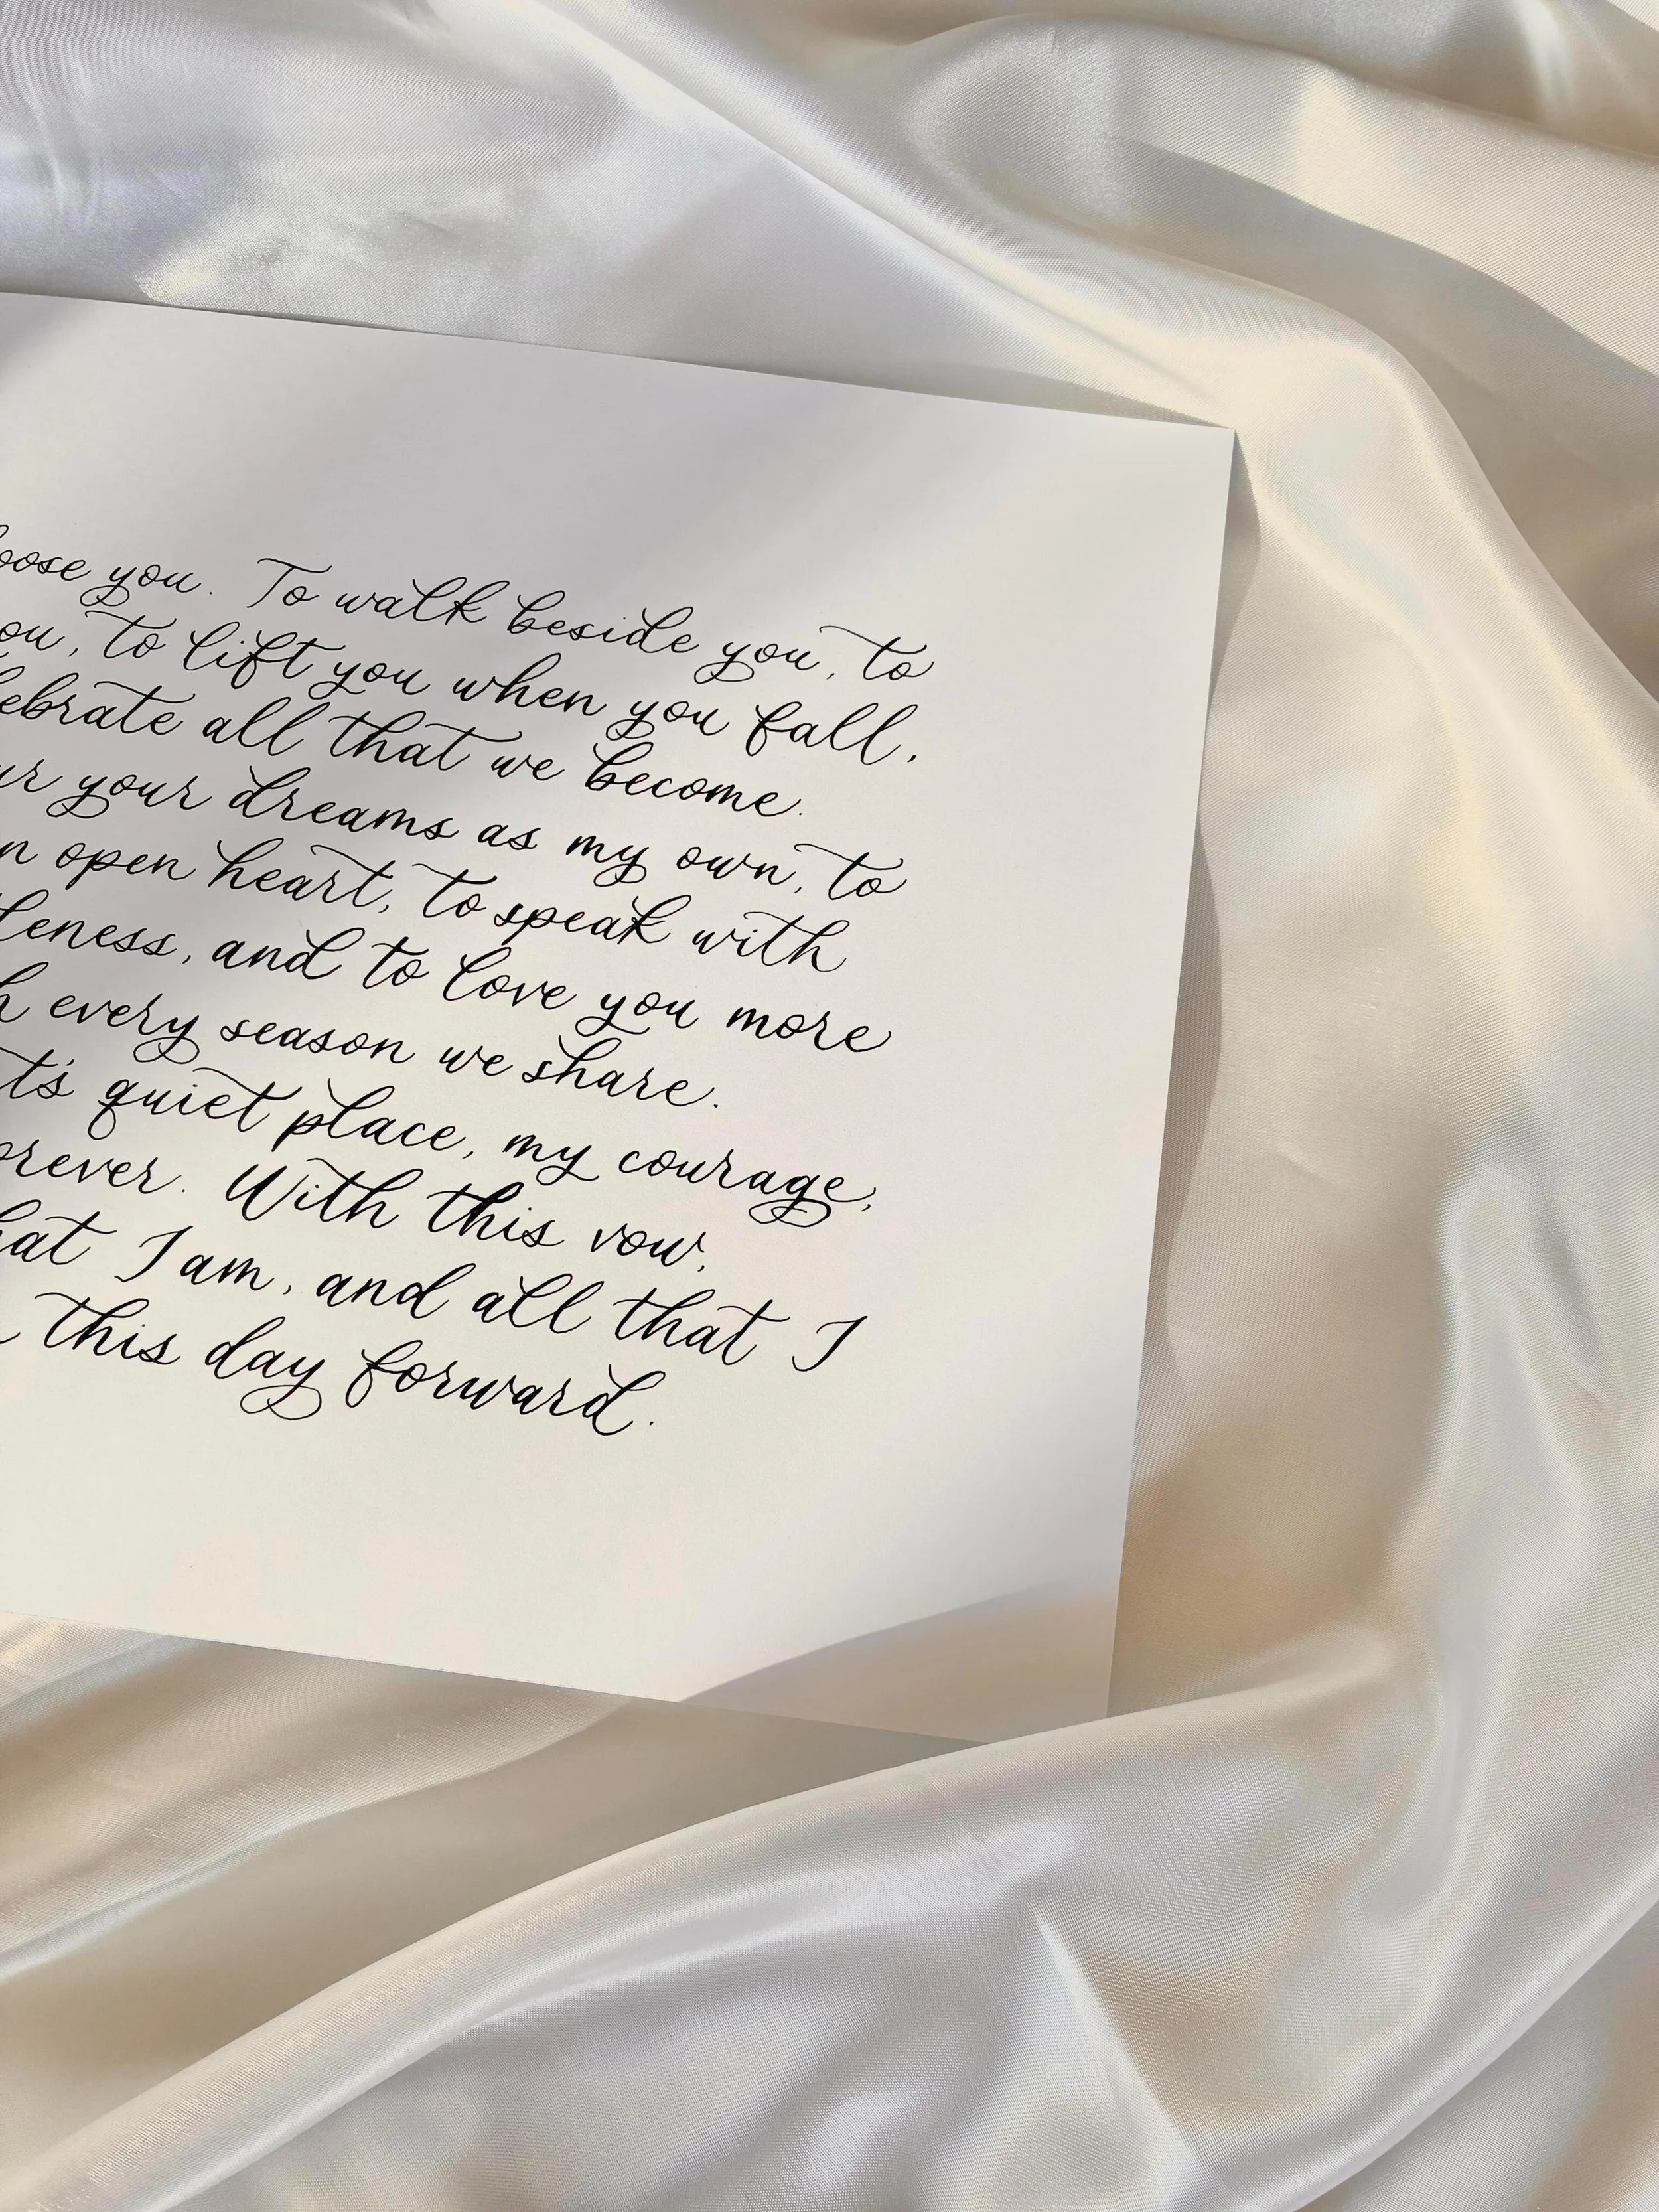 you. To walk beside you, to
to lift you when you fall,
all that we become.
your dreams as my own, to
open heart, to speak with
and to love you more
every season we share.
quiet place, my courage,
With this vow,
I am, and all that I
this day forward.